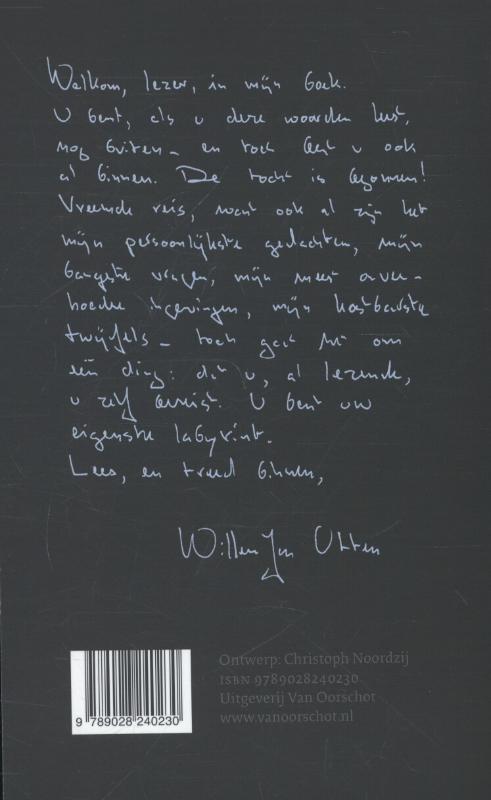 Welkom, lezer, in mijn boek.
U bent, als u deze woorden leest,
nog buiten – en toch bent u ook
al binnen. De tocht is begonnen!
Vreemde reis, want ook al zijn het
mijn persoonlijkste gedachten, mijn
bangste vragen, mijn meest onver-
hoedse ingevingen, mijn kostbaarste
twijfels – toch gaat het om
één ding: dat u, al lezende,
u zelf
U bent uw
eigenste labyrint.
Lees, en treed binnen,
Willem Jan Otten
Ontwerp: Christoph Noordzij
ISBN 9789028240230
Uitgeverij Van Oorschot
www.vanoorschot.nl
9 789028 240230